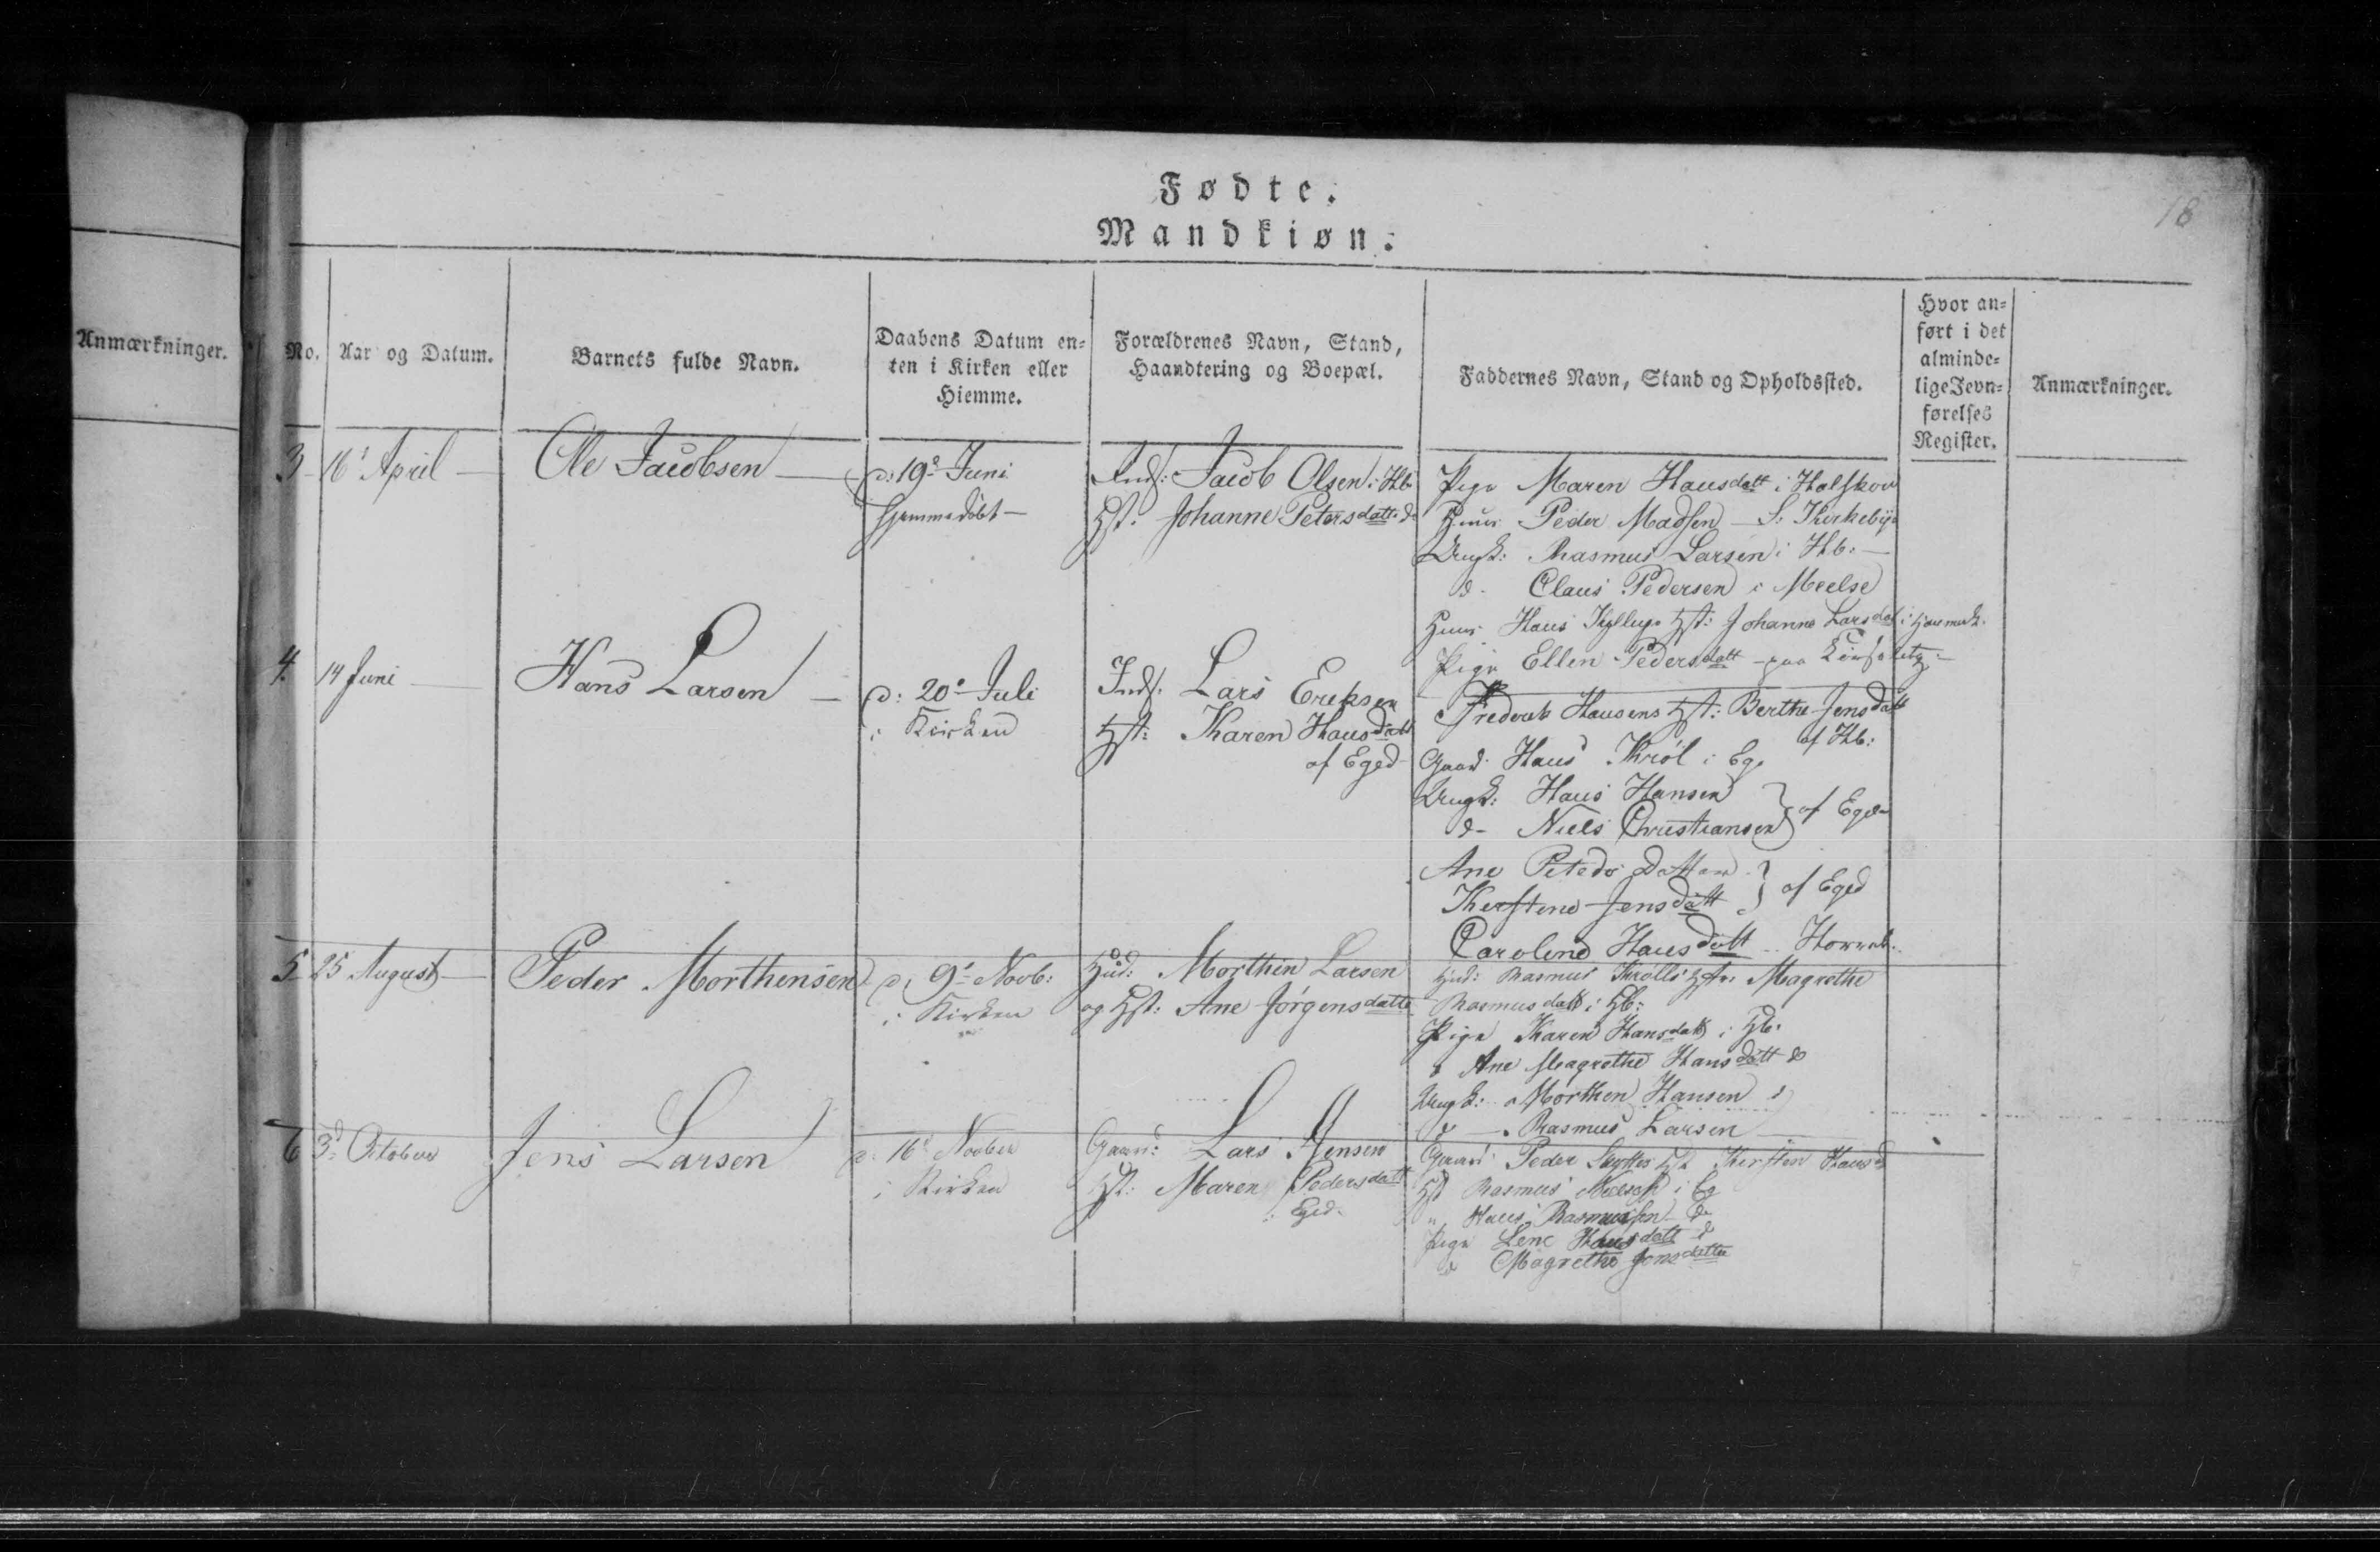 Fødte.
Mandkiøn.
18
Anmærkninger.
No.
Aar og Datum.
Barnets fulde Navn.
Daabens Datum en=
ten i Kirken eller
Hiemme.
Forældrenes Navn, Stand,
Haandtering og Boepæl.
Faddernes Navn, Stand og Opholdssted.
Hvor an=
ført i det
alminde=
lige Jevn=
førelses
Register.
Anmærkninger.
3
16d April
Ole Jacobsen
d: 19d Juni
hjemmedøbt
Inds: Jacob Olsen i Kb:
Hst: Johanne Petersdatt. do
Pige Maren Hansdatt i Halskov
Huus: Peder Madsen S: Kirkebye
Ungk: Rasmus Larsen i Kb:
do Claus Pedersen i Meelse
Huus: Hans Hst: Johanne Larsdat i
Pige Ellen Pedersdatt paa
4.
14 Juni
Hans Larsen
d: 20d Juli
i Kirken
Inds. Lars Eriksen
Hst: Karen Hansdatt
af Eged
Frederik Hansens Hst: Berthe Jensdatt
af Kb:
Gaard: Hans Krøl i Eg.
Ungk: Hans Hansen
do Niels Christiansen } af Eged
Ane Datter
Kirstine Jensdatt } af Eged
Caroline Hansdatt
5
25 August
Peder Morthensen
d: 9d Novb:
i Kirken
Huusd: Morthen Larsen
og Hst: Ane Jørgensdatte
Huusd: Rasmus Krølls Hst: Magrethe
Rasmusdatt i Kb:
Pige Karen Hansdatt i Kb:
Ane Magrethe Hansdatt do
Ungk: Morthen Hansen
do Rasmus Larsen
6
3d October
Jens Larsen
d: 16d November
i Kirken
Gaard: Lars Jensen
Hst: Maren Pedersdatt
i Eged.
Gaard: Peder Hst Kirsten Hansd
Rasmus Nielsen i Eg
" Hans Rasmussen do
Pige Lene Hansdatt do
do Magrethe Jensdatter